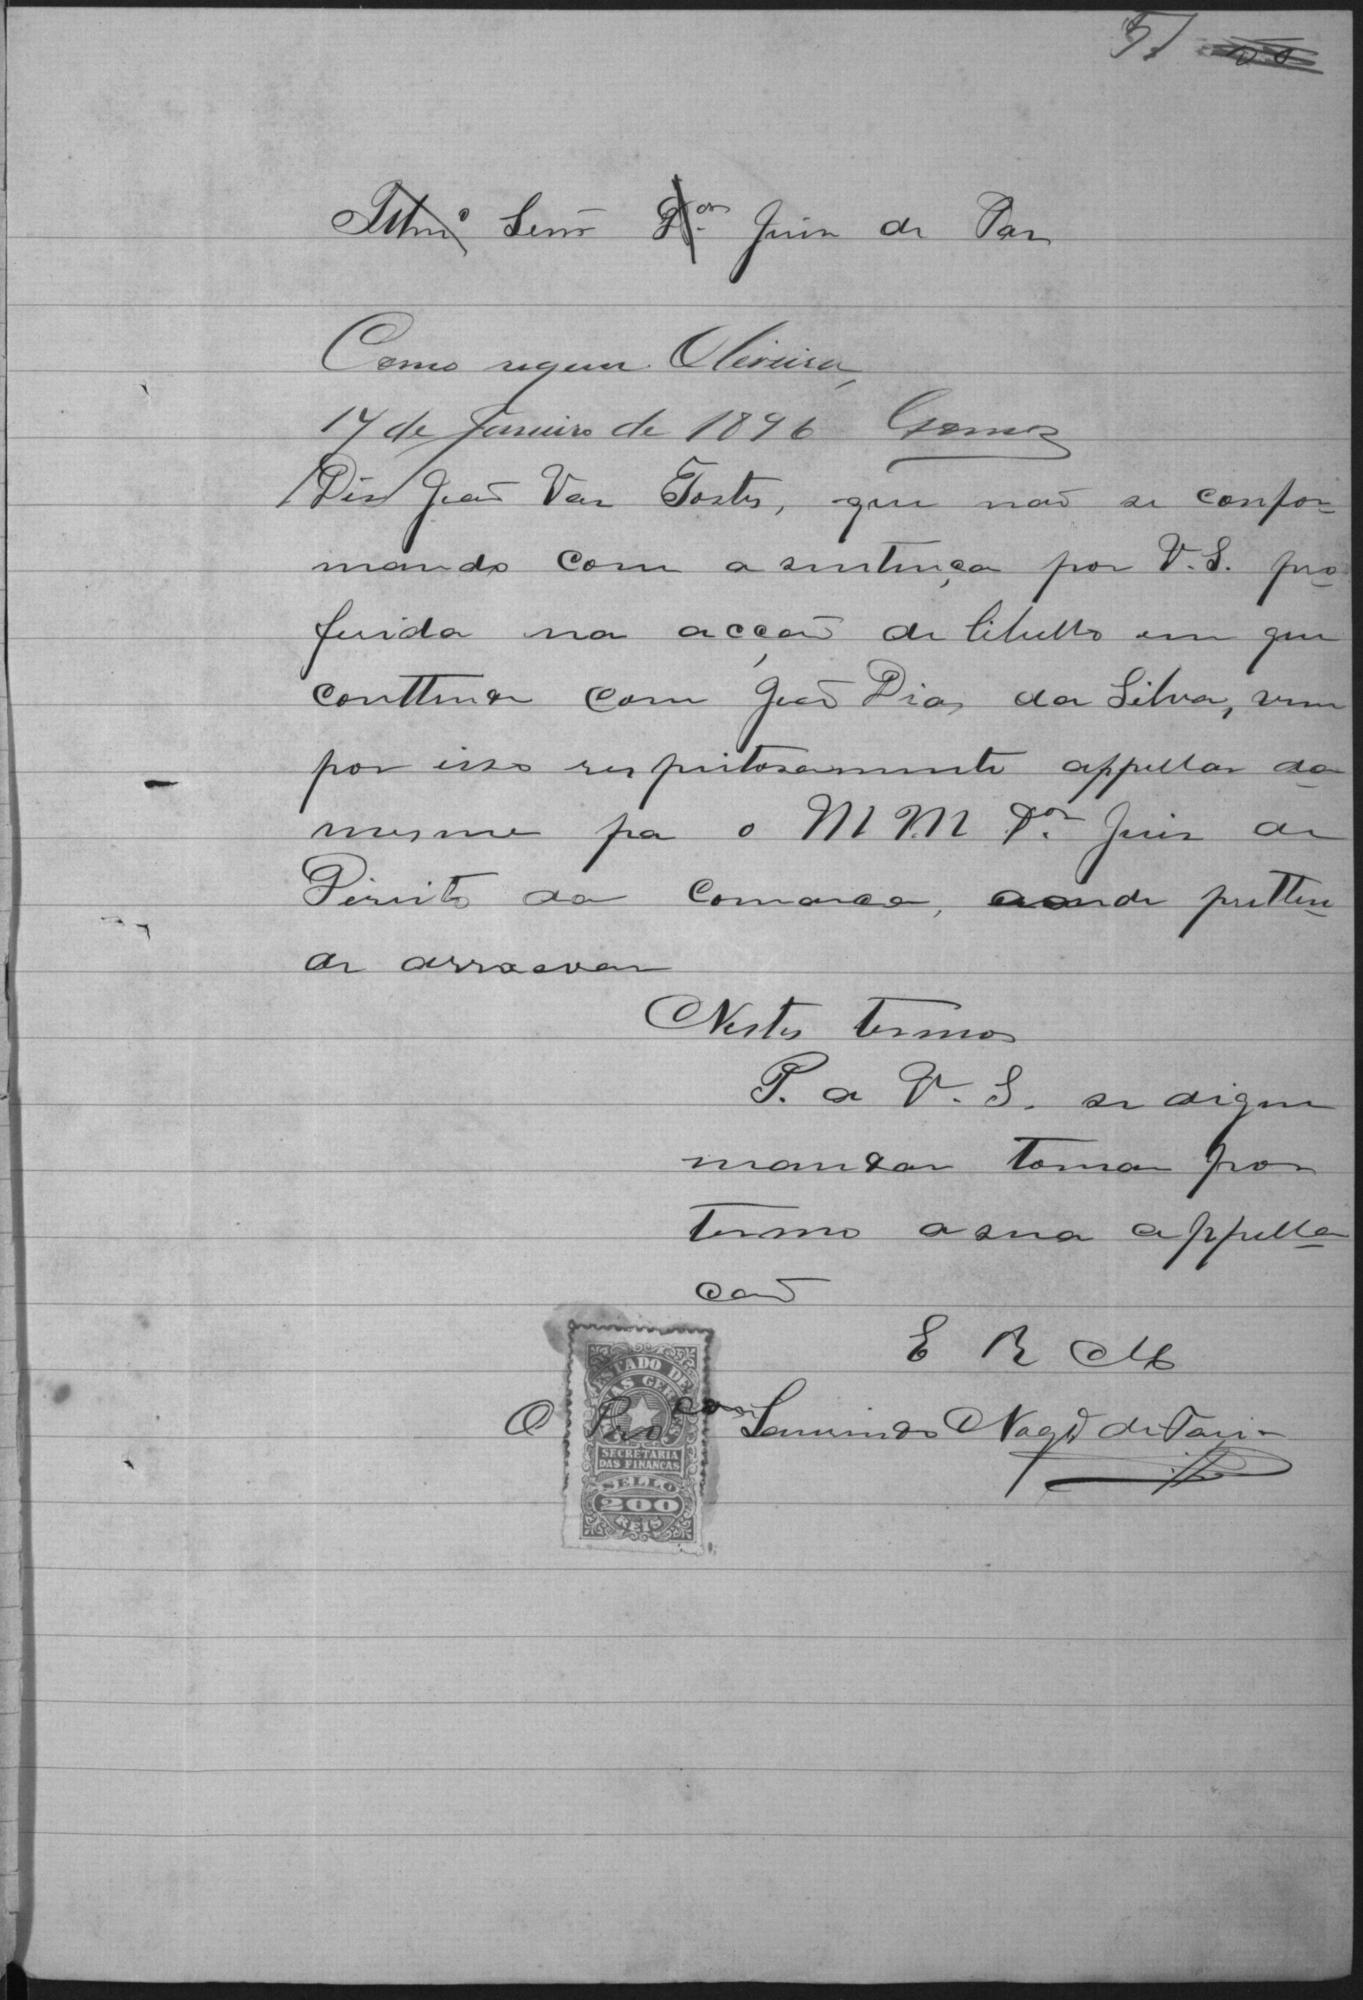 51
Illmº Senr Dor Juiz de Paz
Como requer. Oliveira,
17 de Janeiro de 1896 Gomes
Diz João Vaz Tostes, que não se confor-
mando com a sentença por V. S. pro-
ferida na acção de libello em que
conttende com João Dias da Silva, vem
por isso respeitosamente appellar da
mesma pa o M M Dor Juiz de
Direito da comarca, aonde pretten-
de arrasoar
Nestes termos
P. a V. S. se digne
mandar tomar por
termo a sua appella-
ção
E R M
ESTADO DE
MINAS GERAES
O Procor
SECRETARIA
DAS FINANÇAS
SELLO
200
REIS